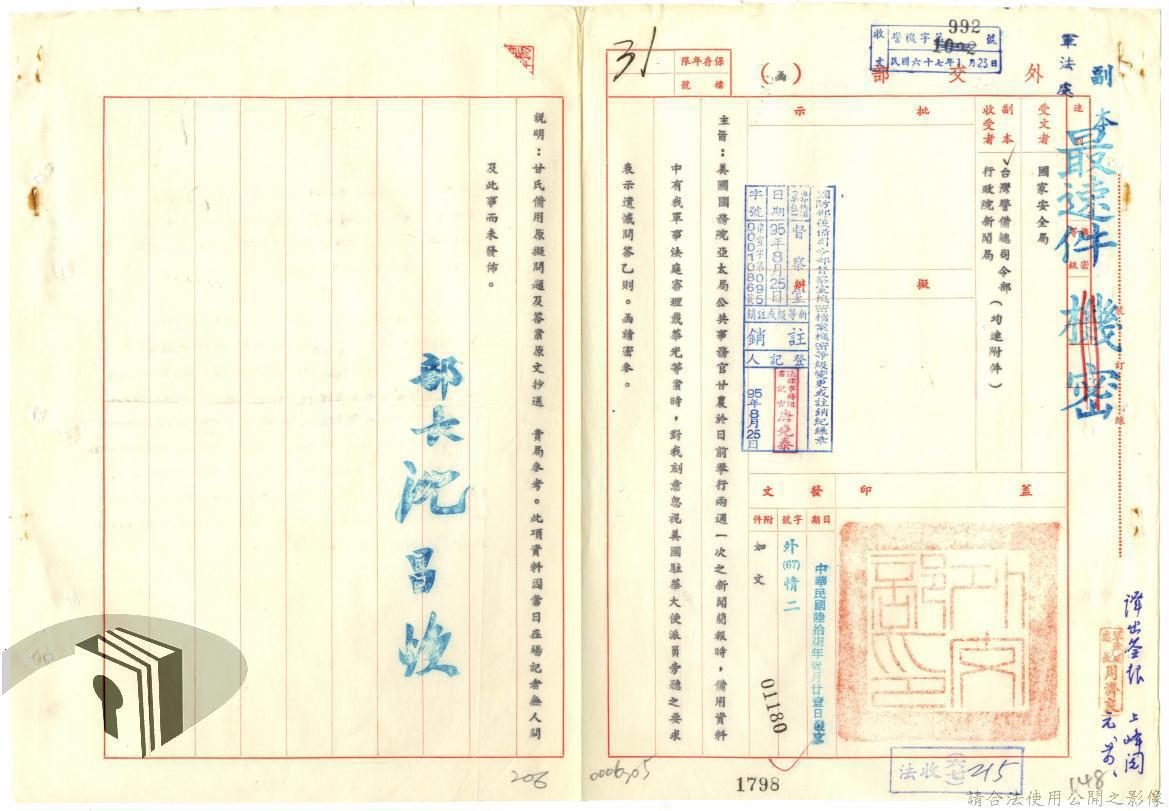 副本
最速件
機密
軍法處
收 警機字第 992 號
1002
文 民國六十七年1月23日
外交部（函）
保存年限
檔號
31
受文者
國家安全局
副本收受者
台灣警備總司令部
行政院新聞局
（均速附件）
批示
擬辦
國防部後備司令部督察室機密檔案機密等級變更或註銷紀錄章
督察室
日期 95年8月25日
字號
新等級或註銷
註銷
登記人
法律事務組書記官 唐堯泰
95年8月25日
蓋印
發文
日期 字號 附件
外(67)情二
01180
如文
主旨：美國國務院亞太局公共事務官甘農於日前舉行兩週一次之新聞簡報時，備用資料
中有我軍事法庭審理戴華光等案時，對我刻意忽視美國駐華大使派員旁聽之要求
表示遺憾問答乙則。函請密參。
說明：甘氏備用原擬問題及答案原文抄送　貴局參考。此項資料因當日在場記者無人問
及此事而未發佈。
部長 沈昌煥
裝訂線
法收(六七)215
1798
148
206
請合法使用公開之影像